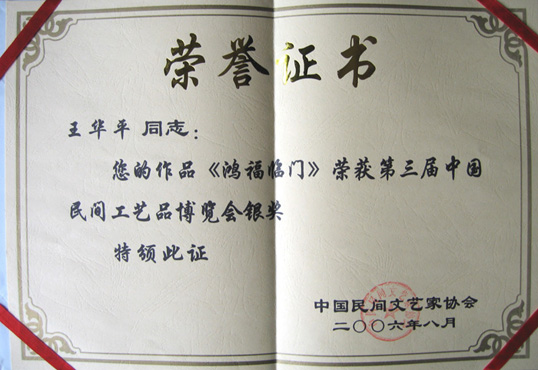 荣誉证书
王华平 同志：
您的作品《鸿福临门》荣获第三届中国
民间工艺品博览会银奖
特颁此证
中国民间文艺家协会
二〇〇六年八月